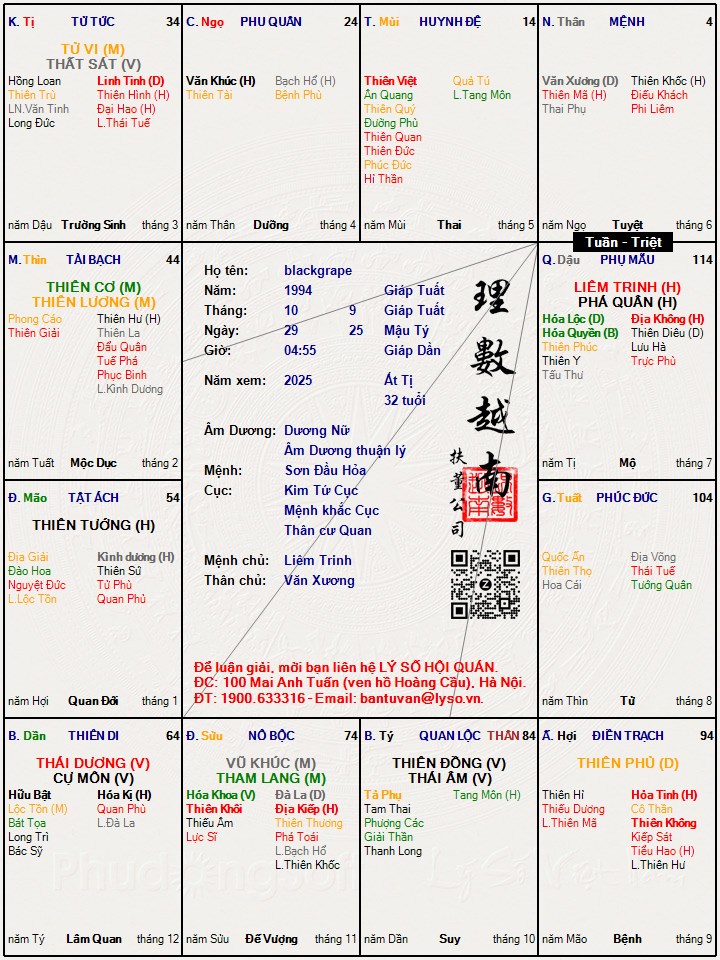 K. Tị TỬ TỨC 34
TỬ VI (M)
THẤT SÁT (V)
Hồng Loan Linh Tinh (D)
Thiên Trù Thiên Hình (H)
LN.Văn Tinh Đại Hao (H)
Long Đức L.Thái Tuế
năm Dậu Trường Sinh tháng 3
C. Ngọ PHU QUÂN 24
Văn Khúc (H) Bạch Hổ (H)
Thiên Tài Bệnh Phù
năm Thân Dưỡng tháng 4
T. Mùi HUYNH ĐỆ 14
Thiên Việt Quả Tú
Ân Quang L.Tang Môn
Thiên Quý
Đường Phù
Thiên Quan
Thiên Đức
Phúc Đức
Hỉ Thần
năm Mùi Thai tháng 5
N. Thân MỆNH 4
Văn Xương (D) Thiên Khốc (H)
Thiên Mã (H) Điếu Khách
Thai Phụ Phi Liêm
năm Ngọ Tuyệt tháng 6
Tuần - Triệt
M. Thìn TÀI BẠCH 44
THIÊN CƠ (M)
THIÊN LƯƠNG (M)
Phong Cáo Thiên Hư (H)
Thiên Giải Thiên La
Đẩu Quân
Tuế Phá
Phục Binh
L.Kình Dương
năm Tuất Mộc Dục tháng 2
Họ tên: blackgrape
Năm: 1994 Giáp Tuất
Tháng: 10 9 Giáp Tuất
Ngày: 29 25 Mậu Tý
Giờ: 04:55 Giáp Dần
Năm xem: 2025 Ất Tị
32 tuổi
Âm Dương: Dương Nữ
Âm Dương thuận lý
Mệnh: Sơn Đầu Hỏa
Cục: Kim Tứ Cục
Mệnh khắc Cục
Thân cư Quan
Mệnh chủ: Liêm Trinh
Thân chủ: Văn Xương
理數越南
扶董公司
Để luận giải, mời bạn liên hệ LÝ SỐ HỘI QUÁN.
ĐC: 100 Mai Anh Tuấn (ven hồ Hoàng Cầu), Hà Nội.
ĐT: 1900.633316 - Email: bantuvan@lyso.vn.
Q. Dậu PHỤ MẪU 114
LIÊM TRINH (H)
PHÁ QUÂN (H)
Hóa Lộc (D) Địa Không (H)
Hóa Quyền (B) Thiên Diêu (D)
Thiên Phúc Lưu Hà
Thiên Y Trực Phù
Tấu Thư
năm Tị Mộ tháng 7
Đ. Mão TẬT ÁCH 54
THIÊN TƯỚNG (H)
Địa Giải Kình dương (H)
Đào Hoa Thiên Sứ
Nguyệt Đức Tử Phù
L.Lộc Tồn Quan Phủ
năm Hợi Quan Đới tháng 1
G. Tuất PHÚC ĐỨC 104
Quốc Ấn Địa Võng
Thiên Thọ Thái Tuế
Hoa Cái Tướng Quân
năm Thìn Tử tháng 8
B. Dần THIÊN DI 64
THÁI DƯƠNG (V)
CỰ MÔN (V)
Hữu Bật Hóa Kị (H)
Lộc Tồn (M) Quan Phù
Bát Tọa L.Đà La
Long Trì
Bác Sỹ
năm Tý Lâm Quan tháng 12
Đ. Sửu NÔ BỘC 74
VŨ KHÚC (M)
THAM LANG (M)
Hóa Khoa (V) Đà La (D)
Thiên Khôi Địa Kiếp (H)
Thiếu Âm Thiên Thương
Lực Sĩ Phá Toái
L.Bạch Hổ
L.Thiên Khốc
năm Sửu Đế Vượng tháng 11
B. Tý QUAN LỘC THÂN 84
THIÊN ĐỒNG (V)
THÁI ÂM (V)
Tả Phụ Tang Môn (H)
Tam Thai
Phượng Các
Giải Thần
Thanh Long
năm Dần Suy tháng 10
Ấ. Hợi ĐIỀN TRẠCH 94
THIÊN PHỦ (D)
Thiên Hỉ Hỏa Tinh (H)
Thiếu Dương Cô Thần
L.Thiên Mã Thiên Không
Kiếp Sát
Tiểu Hao (H)
L.Thiên Hư
năm Mão Bệnh tháng 9